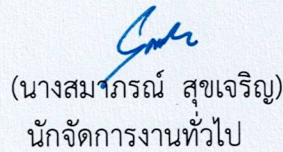 (นางสมาภรณ์ สุขเจริญ)
นักจัดการงานทั่วไป